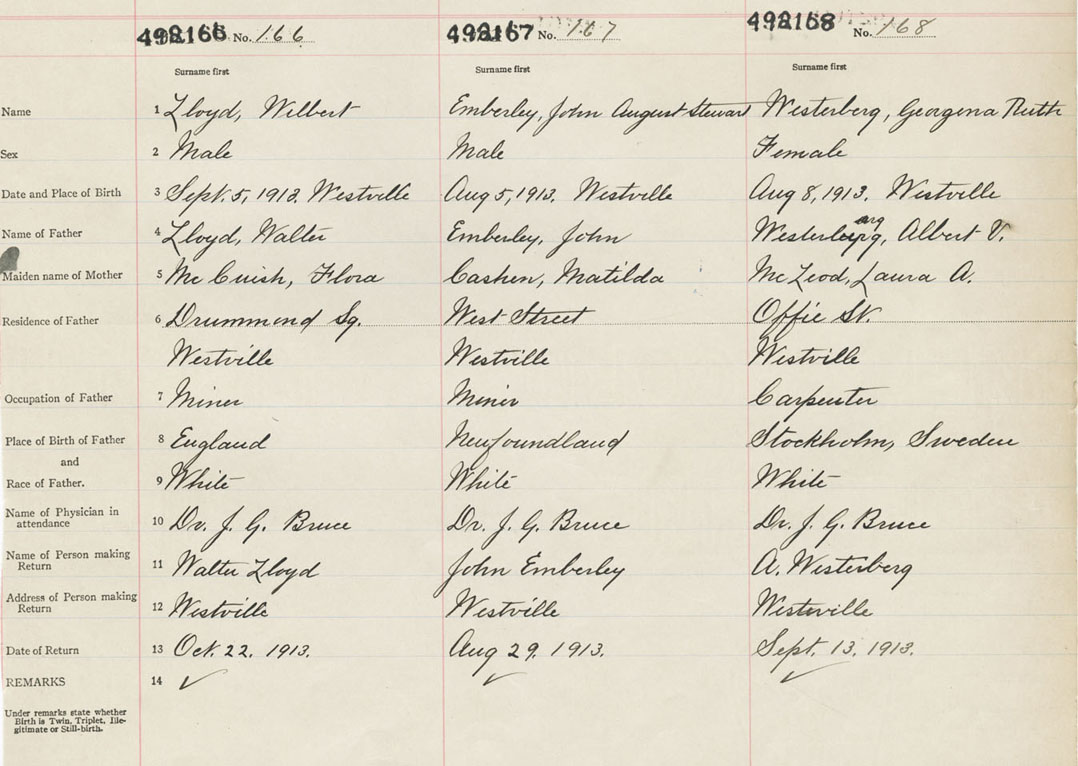 492166 No. 166 492167 No. 167 492168 No. 168
Surname first Surname first Surname first
Name 1 Lloyd, Wilbert Emberley, John August Stewart Westerberg, Georgena Ruth
Sex 2 Male Male Female
Date and Place of Birth 3 Sept. 5, 1913. Westville Aug 5, 1913. Westville Aug 8, 1913. Westville
Name of Father 4 Lloyd, Walter Emberley, John Westerberg, Albert V.
Maiden name of Mother 5 Mc Cuish, Flora Cashen, Matilda Mc Leod, Laura A.
Residence of Father 6 Drummond Sq. West Street Offie St.
Westville Westville Westville
Occupation of Father 7 Miner Miner Carpenter
Place of Birth of Father 8 England Newfoundland Stockholm, Sweden
and
Race of Father. 9 White White White
Name of Physician in
attendance 10 Dr. J. G. Bruce Dr. J. G. Bruce Dr. J. G. Bruce
Name of Person making
Return 11 Walter Lloyd John Emberley A. Westerberg
Address of Person making
Return 12 Westville Westville Westville
Date of Return 13 Oct. 22. 1913. Aug 29. 1913. Sept. 13, 1913.
REMARKS 14 ✓ ✓ ✓
Under remarks state whether
Birth is Twin, Triplet, Ille-
gitimate or Still-birth.